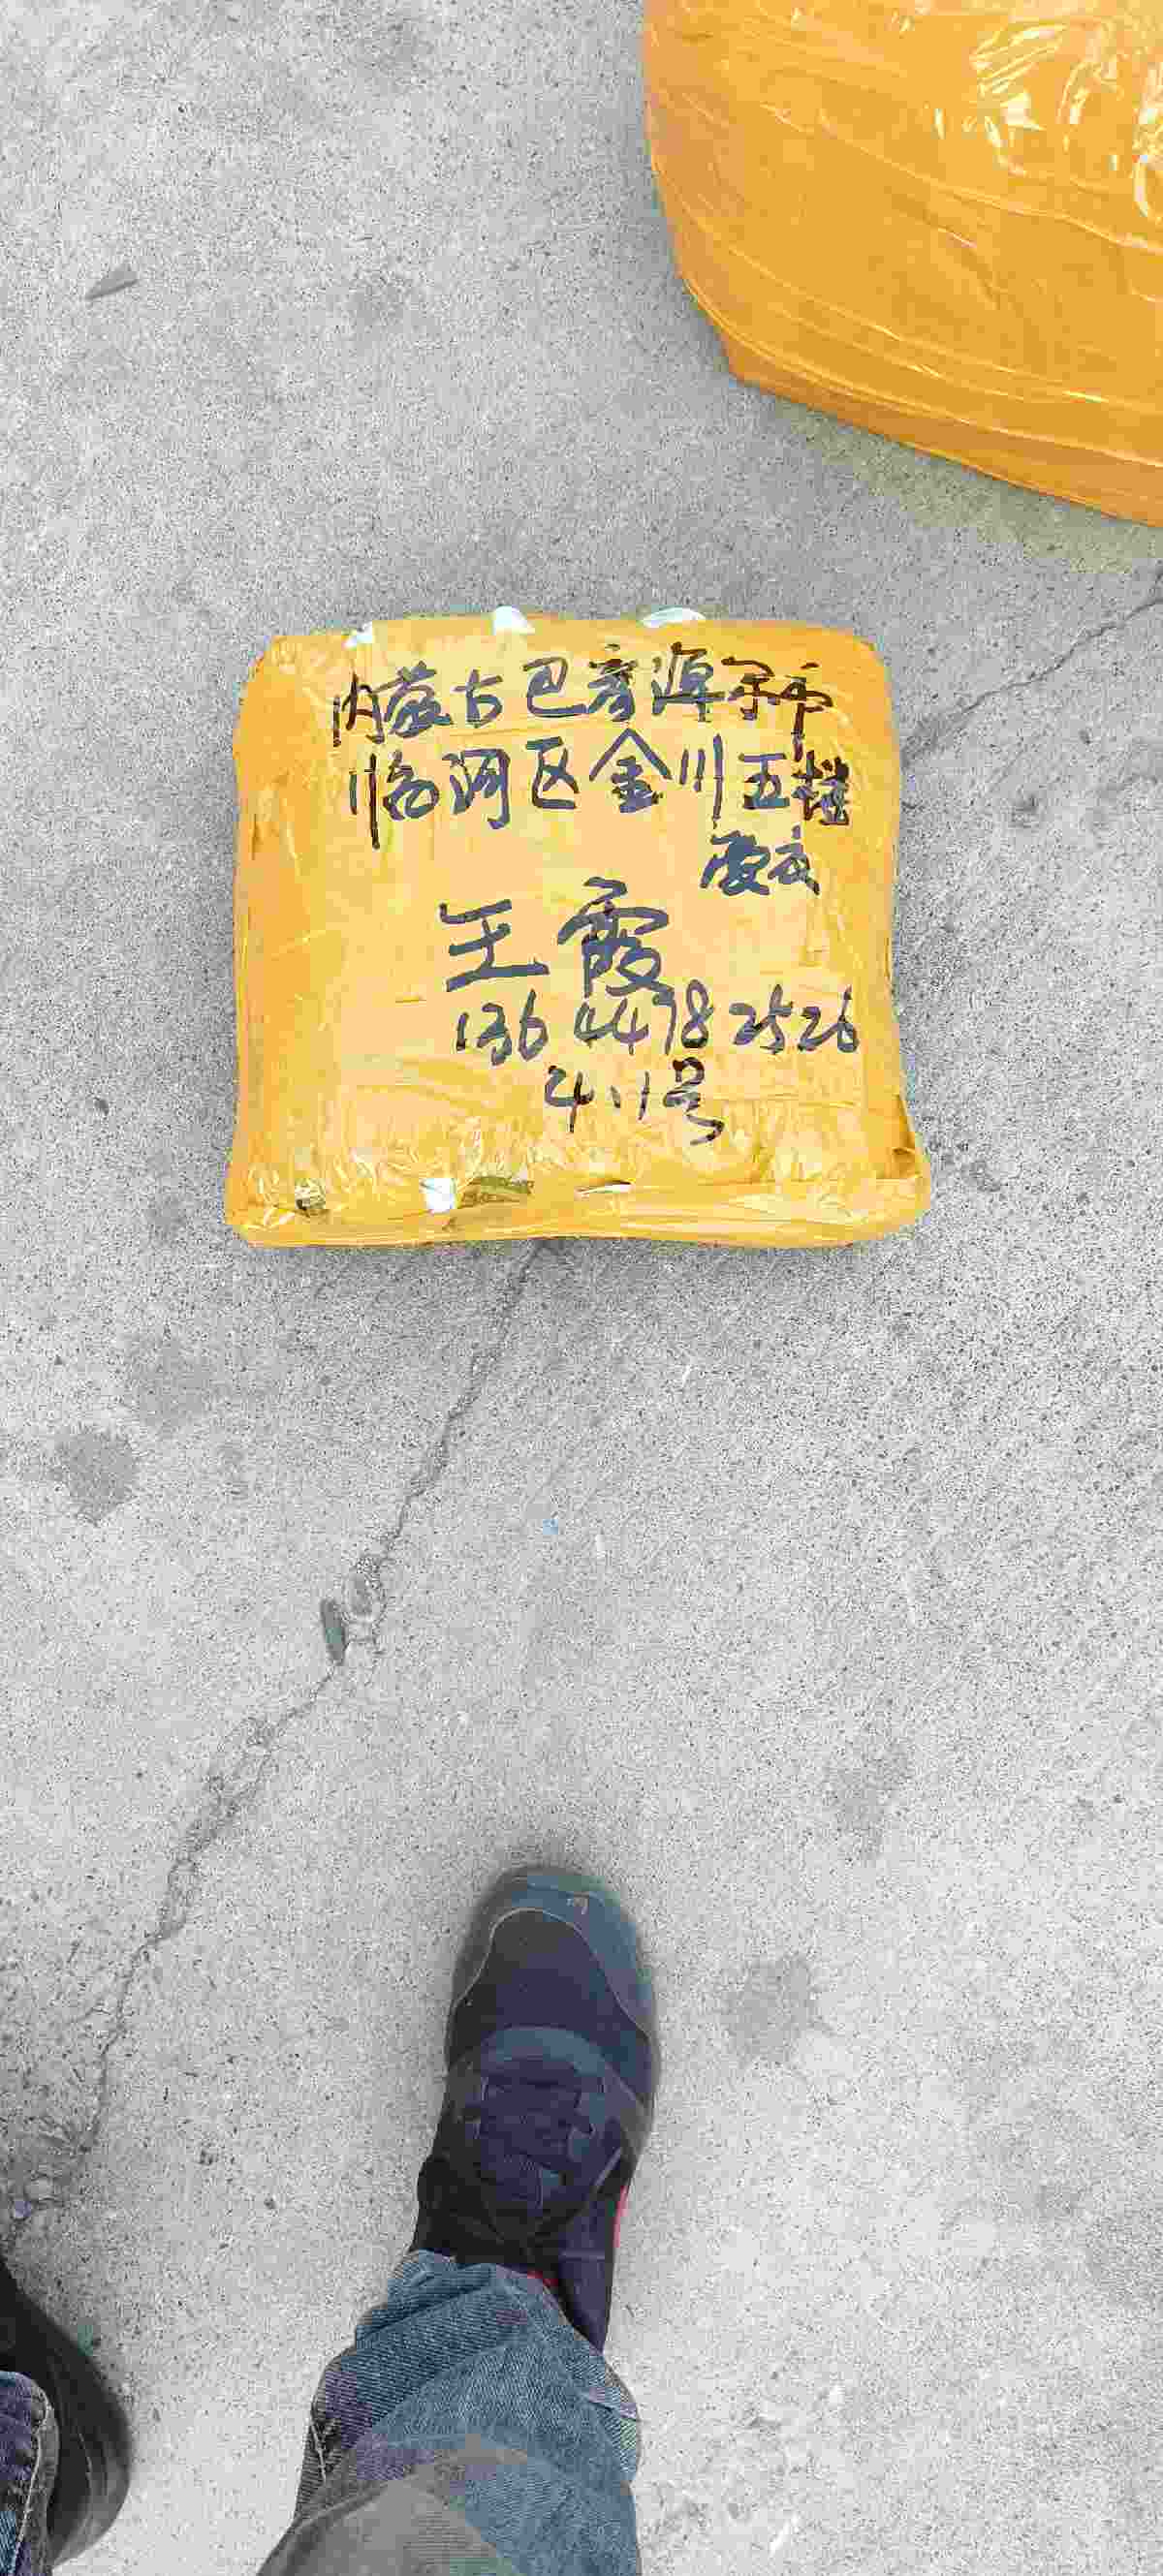 内蒙古巴彦淖尔市
临河区金川五楼
王霞
136 4478 2526
4.11号